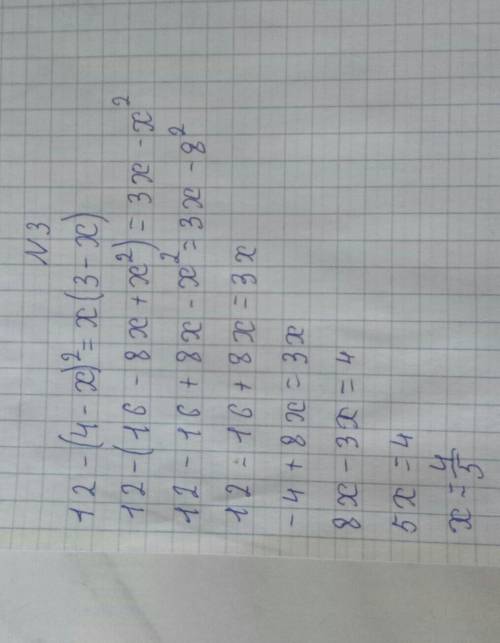 N3
12-(4-x)²=x(3-x)
12-(16-8x+x²)=3x-x²
12-16+8x-x²=3x-8²
12-16+8x=3x
-4+8x=3x
8x-3x=4
5x=4
x=4/5